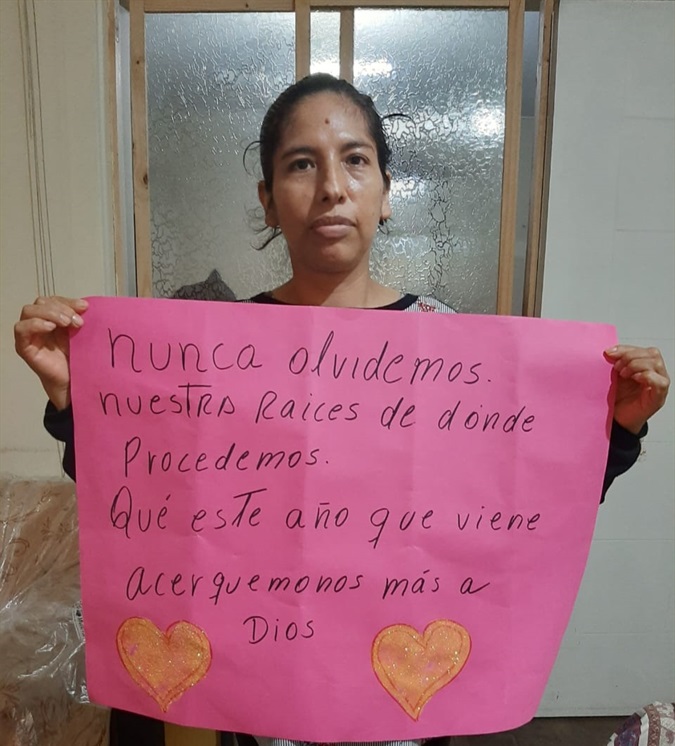 nunca olvidemos.
nuesTRA Raices de dónde
Procedemos.
Qué esTe año que viene
acerquemonos más a
Dios